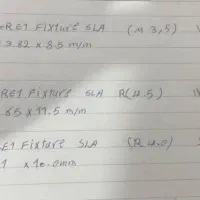 RE1 Fixture SLA (M 3,5)
3.82 x 8.5 m/m
RE1 Fixture SLA R(4.5)
65 x 11.5 m/m
RE1 Fixture SLA (R 4.0)
1 x 10.0mm